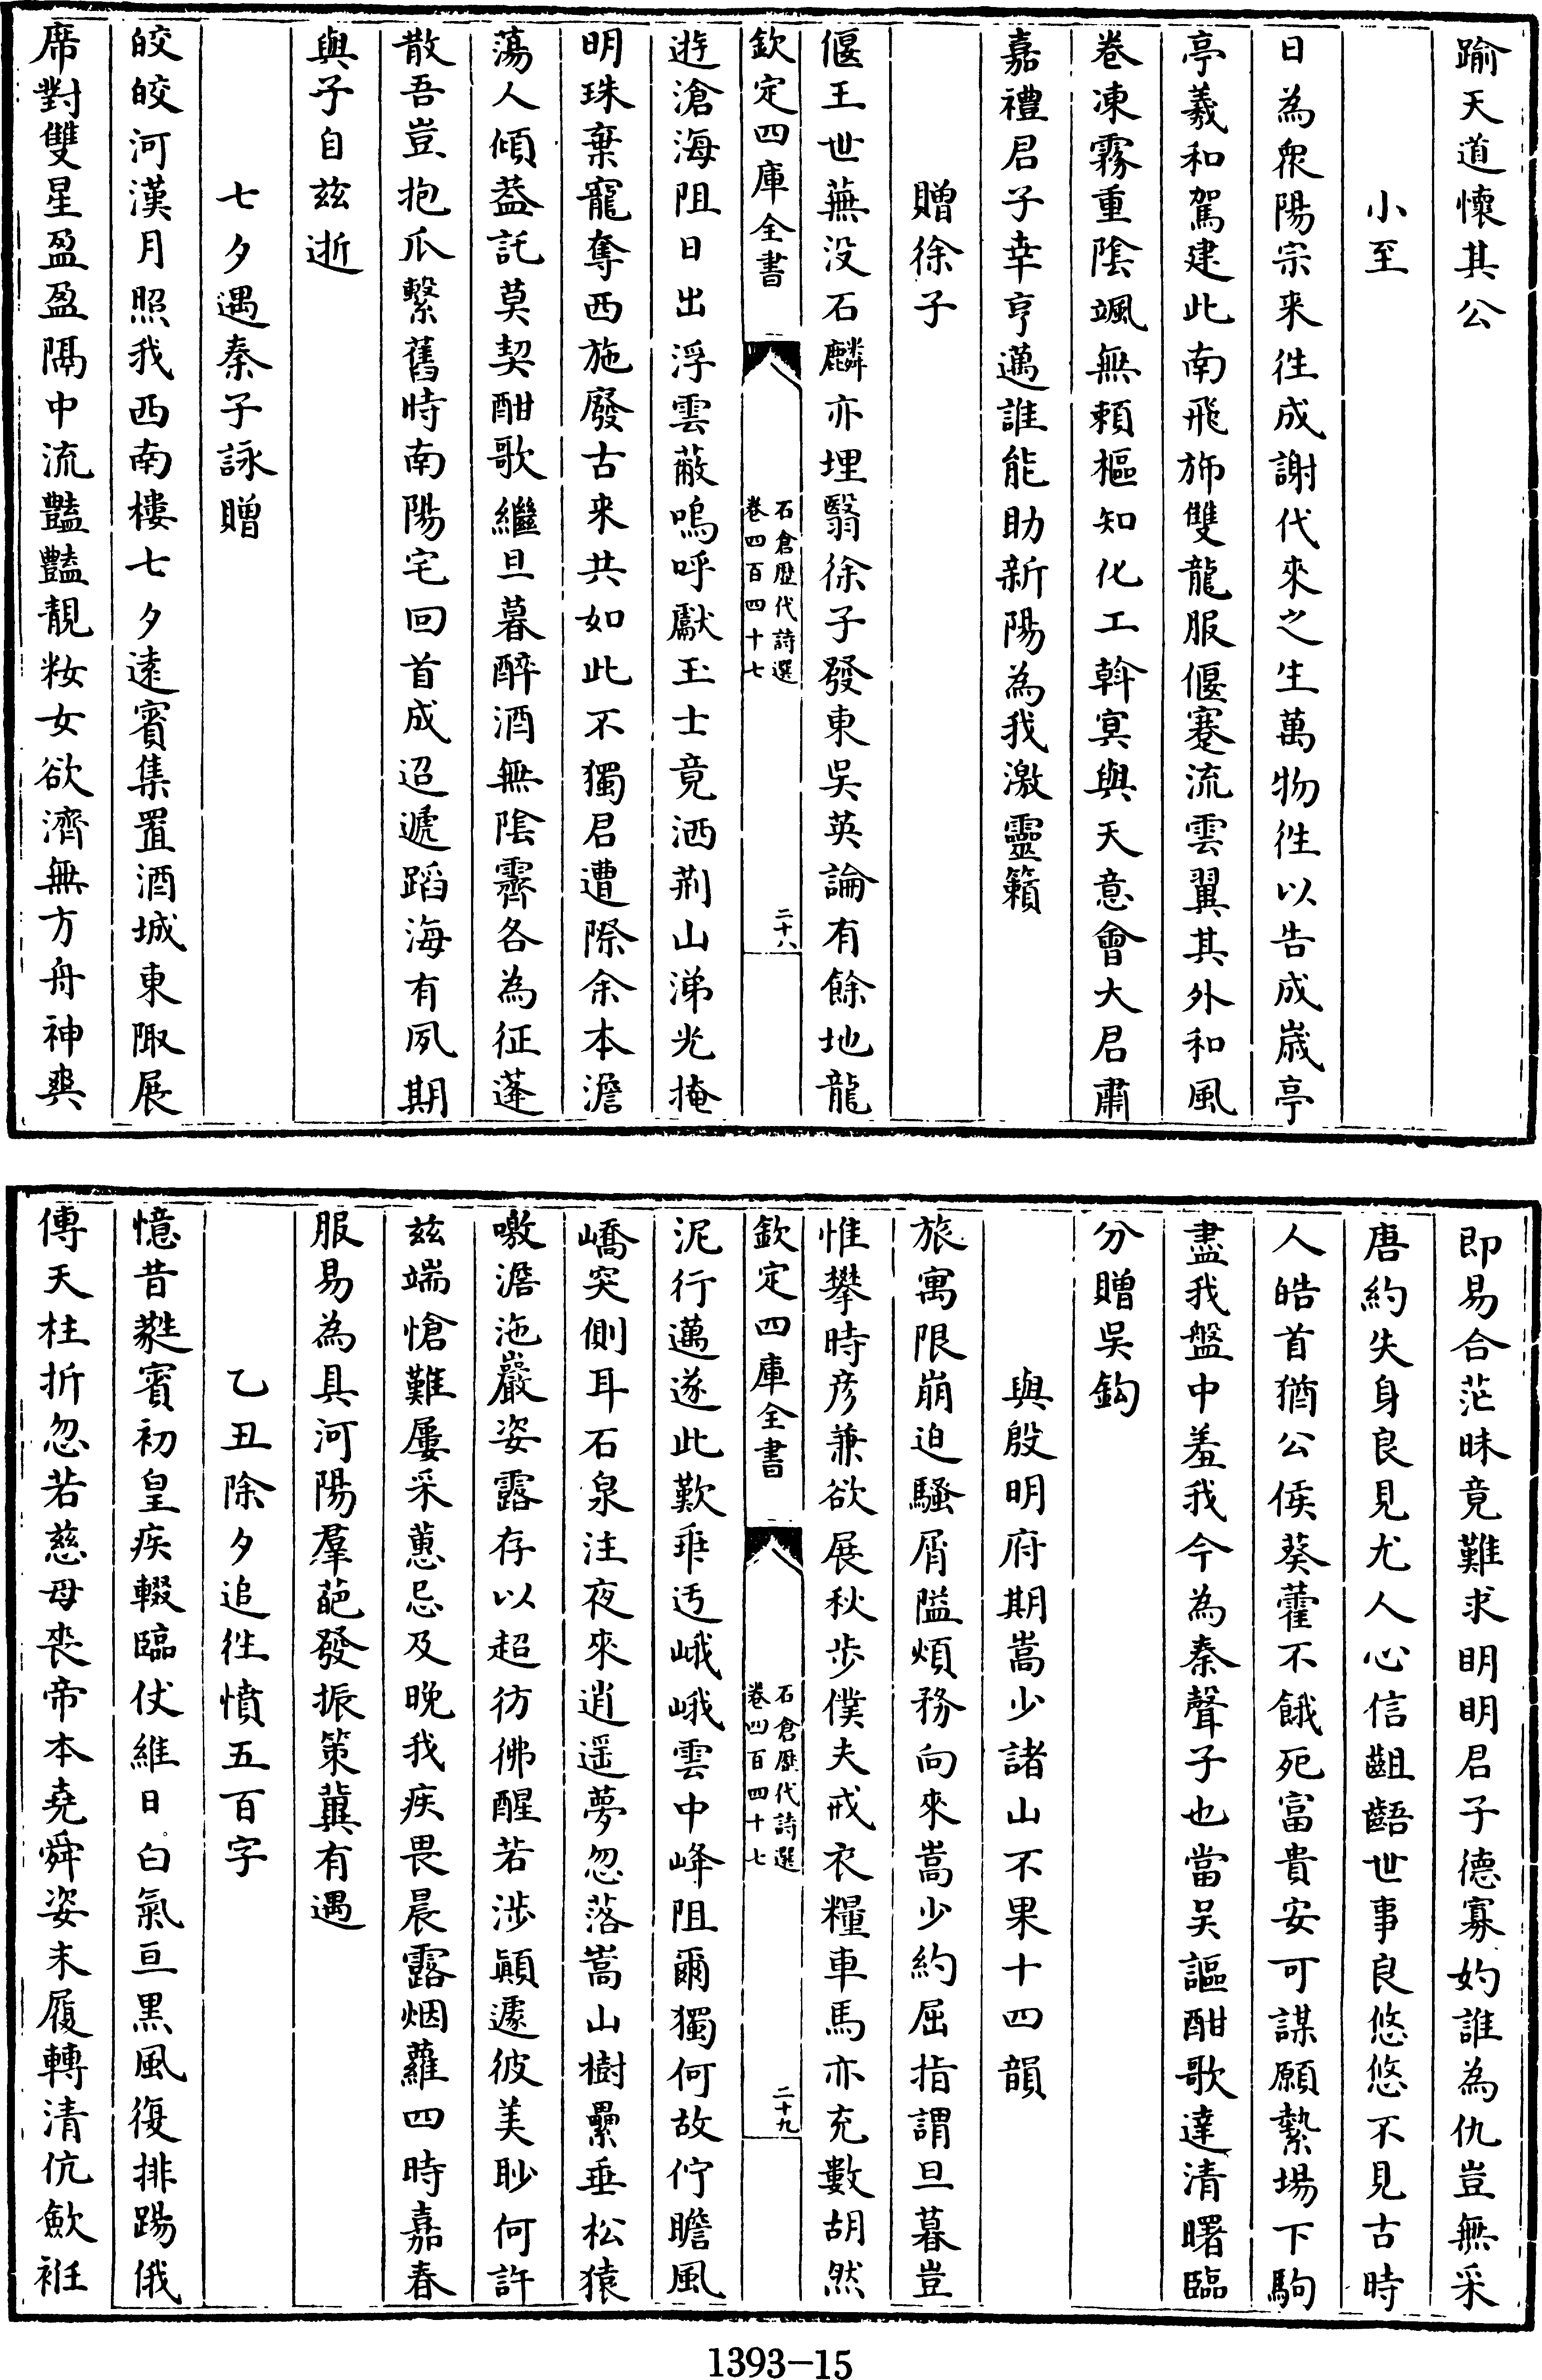 踰天道懷其公
小至
日為衆陽宗来徃成謝代來之生萬物徃以告成嵗亭
亭羲和駕建此南飛斾雙龍服偃蹇流雲翼其外和風
卷凍霧重陰颯無頼樞知化工斡寅與天意會大君肅
嘉禮君子幸亨邁誰能助新陽為我激靈籟
贈徐子
偃王世蕪没石麟亦埋翳徐子發東吳英論有餘地龍
欽定四庫全書
石倉歴代詩選
卷四百四十七
二十八
逰滄海阻日出浮雲蔽嗚呼獻玉士竟洒荆山涕光掩
明珠棄寵奪西施廢古来共如此不獨君遭際余本澹
蕩人傾葢託莫契酣歌繼旦暮醉酒無陰霽各為征蓬
散吾豈抱瓜繫舊時南陽宅回首成迢遞蹈海有夙期
與子自兹逝
七夕遇秦子詠贈
皎皎河漢月照我西南樓七夕逺賓集置酒城東陬展
席對雙星盈盈隔中流豔豔靚粧女欲濟無方舟神爽
即易合茫昧竟難求明明君子德寡妁誰為仇豈無采
唐約失身良見尤人心信齟齬世事良悠悠不見古時
人皓首猶公侯葵藿不餓死富貴安可謀願縶場下駒
盡我盤中羞我今為秦聲子也當吳謳酣歌達清曙臨
分贈吳鈎
與殷明府期嵩少諸山不果十四韻
旅寓限崩迫騷屑隘煩務向來嵩少約屈指謂旦暮豈
惟攀時彦兼欲展秋歩僕夫戒衣糧車馬亦充數胡然
欽定四庫全書
石倉歴代詩選
卷四百四十七
二十九
泥行邁遂此歎乖迕峨峨雲中峰阻爾獨何故佇瞻風
嶠突側耳石泉注夜來逍遥夢忽落嵩山樹纍垂松猿
噭澹沲巖姿露存以超彷彿醒若渉顛遽彼美眇何許
兹端愴難屢采蕙忌及晚我疾畏晨露烟蘿四時嘉春
服易為具河陽羣葩發振策冀有遇
乙丑除夕追徃憤五百字
憶昔蕤賓初皇疾輟臨仗維日白氣亘黒風復排踢俄
傳天柱折忽若慈母喪帝本堯舜姿末履轉清伉歛袵